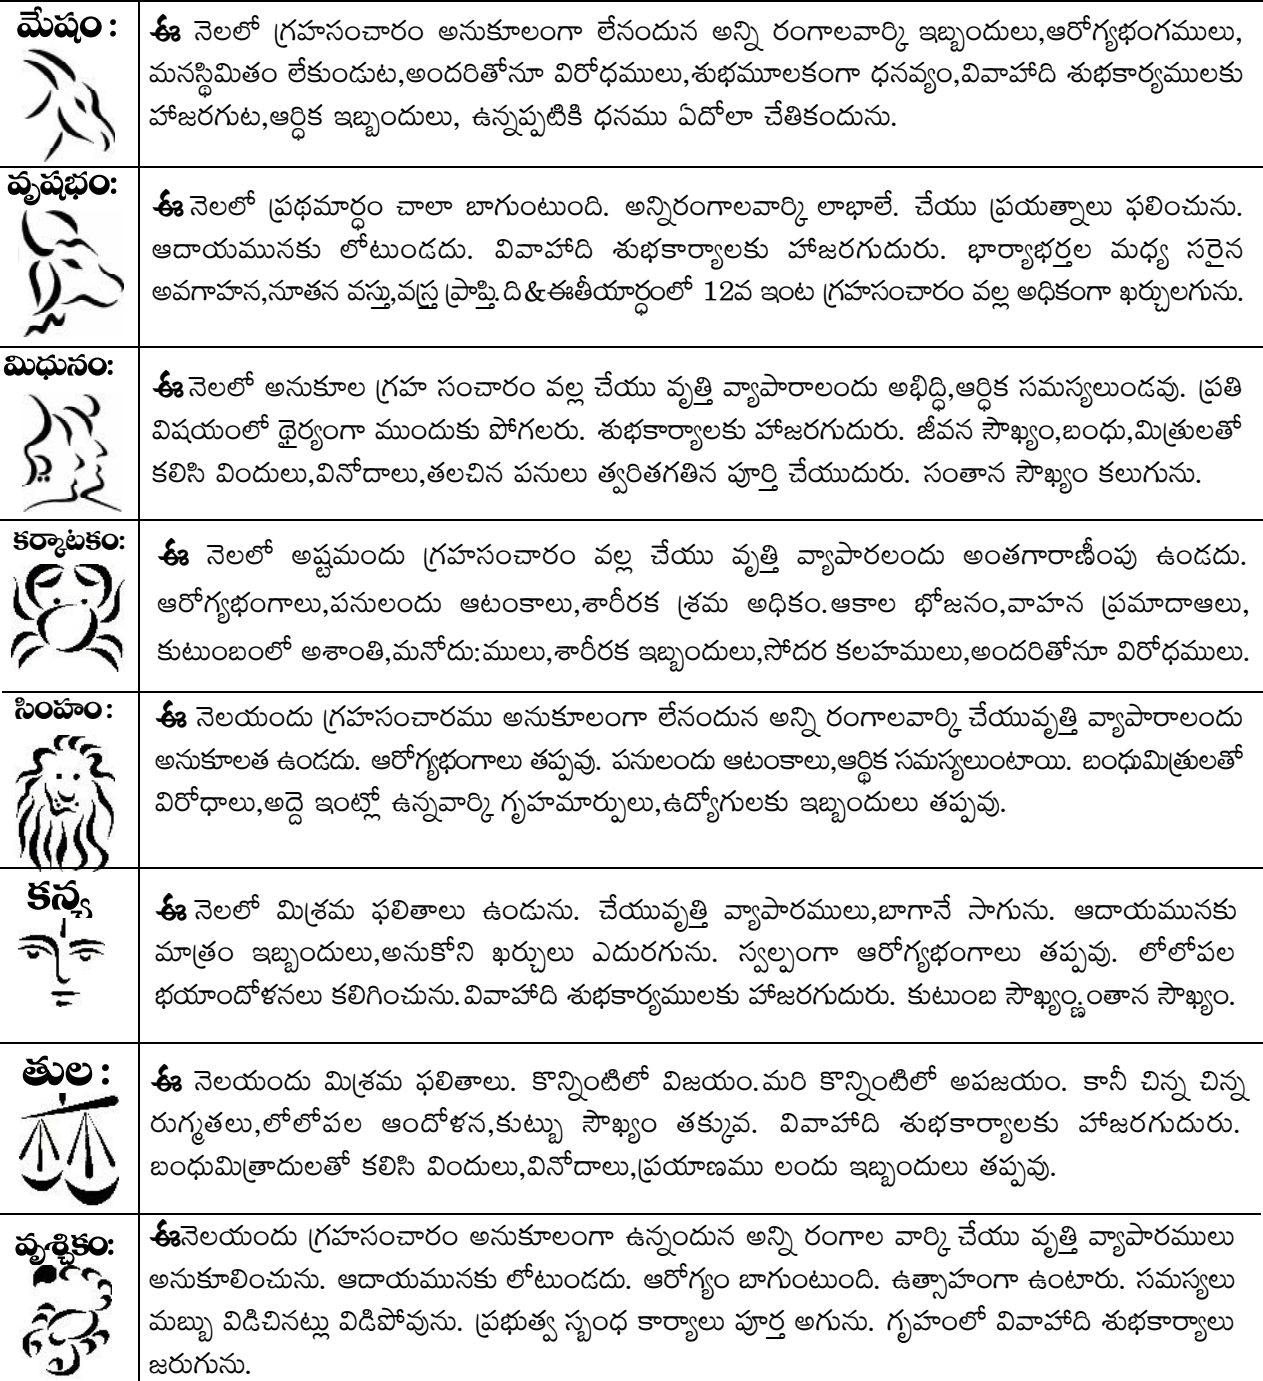 మేషం :
ఈ నెలలో గ్రహసంచారం అనుకూలంగా లేనందున అన్ని రంగాలవార్కి ఇబ్బందులు,ఆరోగ్యభంగములు,
మనస్థిమితం లేకుండుట,అందరితోనూ విరోధములు,శుభమూలకంగా ధనవ్యం,వివాహాది శుభకార్యములకు
హాజరగుట,ఆర్ధిక ఇబ్బందులు, ఉన్నప్పటికి ధనము ఏదోలా చేతికందును.
వృషభం:
ఈ నెలలో ప్రథమార్ధం చాలా బాగుంటుంది. అన్నిరంగాలవార్కి లాభాలే. చేయు ప్రయత్నాలు ఫలించును.
ఆదాయమునకు లోటుండదు. వివాహాది శుభకార్యాలకు హాజరగుదురు. భార్యాభర్తల మధ్య సరైన
అవగాహన,నూతన వస్తు,వస్త్ర ప్రాప్తి.ది&ఈతీయార్ధంలో 12వ ఇంట గ్రహసంచారం వల్ల అధికంగా ఖర్చులగును.
మిధునం:
ఈ నెలలో అనుకూల గ్రహ సంచారం వల్ల చేయు వృత్తి వ్యాపారాలందు అభిద్ధి,ఆర్ధిక సమస్యలుండవు. ప్రతి
విషయంలో థైర్యంగా ముందుకు పోగలరు. శుభకార్యాలకు హాజరగుదురు. జీవన సౌఖ్యం,బంధు,మిత్రులతో
కలిసి విందులు,వినోదాలు,తలచిన పనులు త్వరితగతిన పూర్తి చేయుదురు. సంతాన సౌఖ్యం కలుగును.
కర్కాటకం:
ఈ నెలలో అష్టమందు గ్రహసంచారం వల్ల చేయు వృత్తి వ్యాపారలందు అంతగారాణింపు ఉండదు.
ఆరోగ్యభంగాలు,పనులందు ఆటంకాలు,శారీరక శ్రమ అధికం.ఆకాల భోజనం,వాహన ప్రమాదాఆలు,
కుటుంబంలో అశాంతి,మనోదు:ములు,శారీరక ఇబ్బందులు,సోదర కలహములు,అందరితోనూ విరోధములు.
సింహం:
ఈ నెలయందు గ్రహసంచారము అనుకూలంగా లేనందున అన్ని రంగాలవార్కి చేయువృత్తి వ్యాపారాలందు
అనుకూలత ఉండదు. ఆరోగ్యభంగాలు తప్పవు. పనులందు ఆటంకాలు,ఆర్థిక సమస్యలుంటాయి. బంధుమిత్రులతో
విరోధాలు,అద్దె ఇంట్లో ఉన్నవార్కి గృహమార్పులు,ఉద్యోగులకు ఇబ్బందులు తప్పవు.
కన్య
ఈ నెలలో మిశ్రమ ఫలితాలు ఉండును. చేయువృత్తి వ్యాపారములు,బాగానే సాగును. ఆదాయమునకు
మాత్రం ఇబ్బందులు,అనుకోని ఖర్చులు ఎదురగును. స్వల్పంగా ఆరోగ్యభంగాలు తప్పవు. లోలోపల
భయాందోళనలు కలిగించును.వివాహాది శుభకార్యములకు హాజరగుదురు. కుటుంబ సౌఖ్యం సౌఖ్యం.
తుల :
ఈ నెలయందు మిశ్రమ ఫలితాలు. కొన్నింటిలో విజయం.మరి కొన్నింటిలో అపజయం. కానీ చిన్న చిన్న
రుగ్మతలు,లోలోపల ఆందోళన,కుట్బు సౌఖ్యం తక్కువ. వివాహాది శుభకార్యాలకు హాజరగుదురు.
బంధుమిత్రాదులతో కలిసి విందులు,వినోదాలు,ప్రయాణము లందు ఇబ్బందులు తప్పవు.
వృశ్చికం:
ఈనెలయందు గ్రహసంచారం అనుకూలంగా ఉన్నందున అన్ని రంగాల వార్కి చేయు వృత్తి వ్యాపారములు
అనుకూలించును. ఆదాయమునకు లోటుండదు. ఆరోగ్యం బాగుంటుంది. ఉత్సాహంగా ఉంటారు. సమస్యలు
మబ్బు విడిచినట్లు విడిపోవును. ప్రభుత్వ స్బంధ కార్యాలు పూర్త అగును. గృహంలో వివాహాది శుభకార్యాలు
జరుగును.